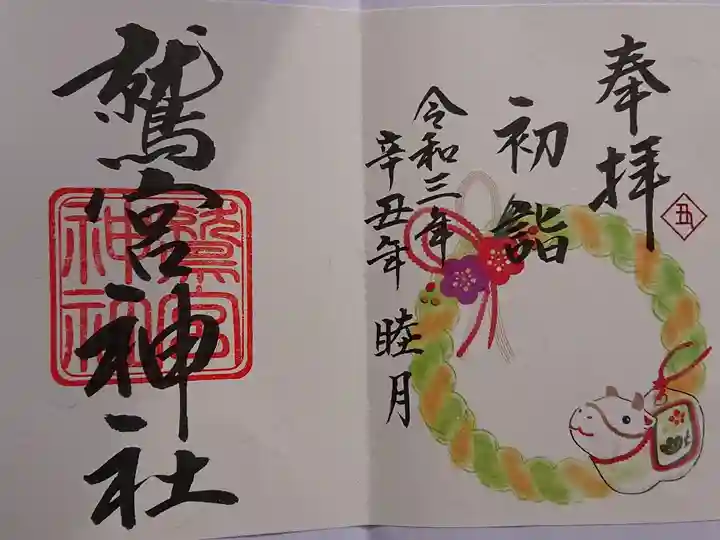 奉拝
丑
初詣
令和三年
辛丑年 睦月
鷲宮神社
鷲宮
神社